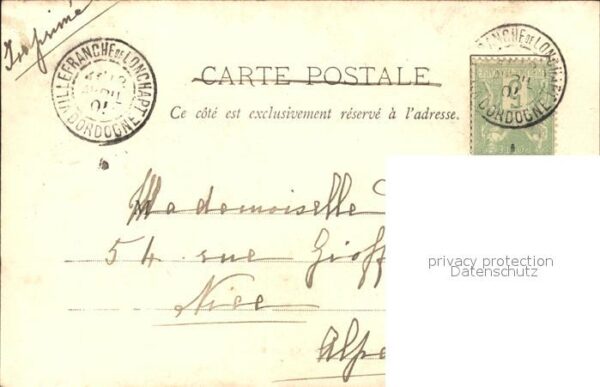 Imprimé
VILLEFRANCHE DE LONCHAPT
DORDOGNE
CARTE POSTALE
Ce côté est exclusivement réservé à l'adresse.
VILLEFRANCHE DE LONCHAPT
DORDOGNE
5
Mademoiselle
54 rue Gioff
Nice
Alpe
privacy protection
Datenschutz